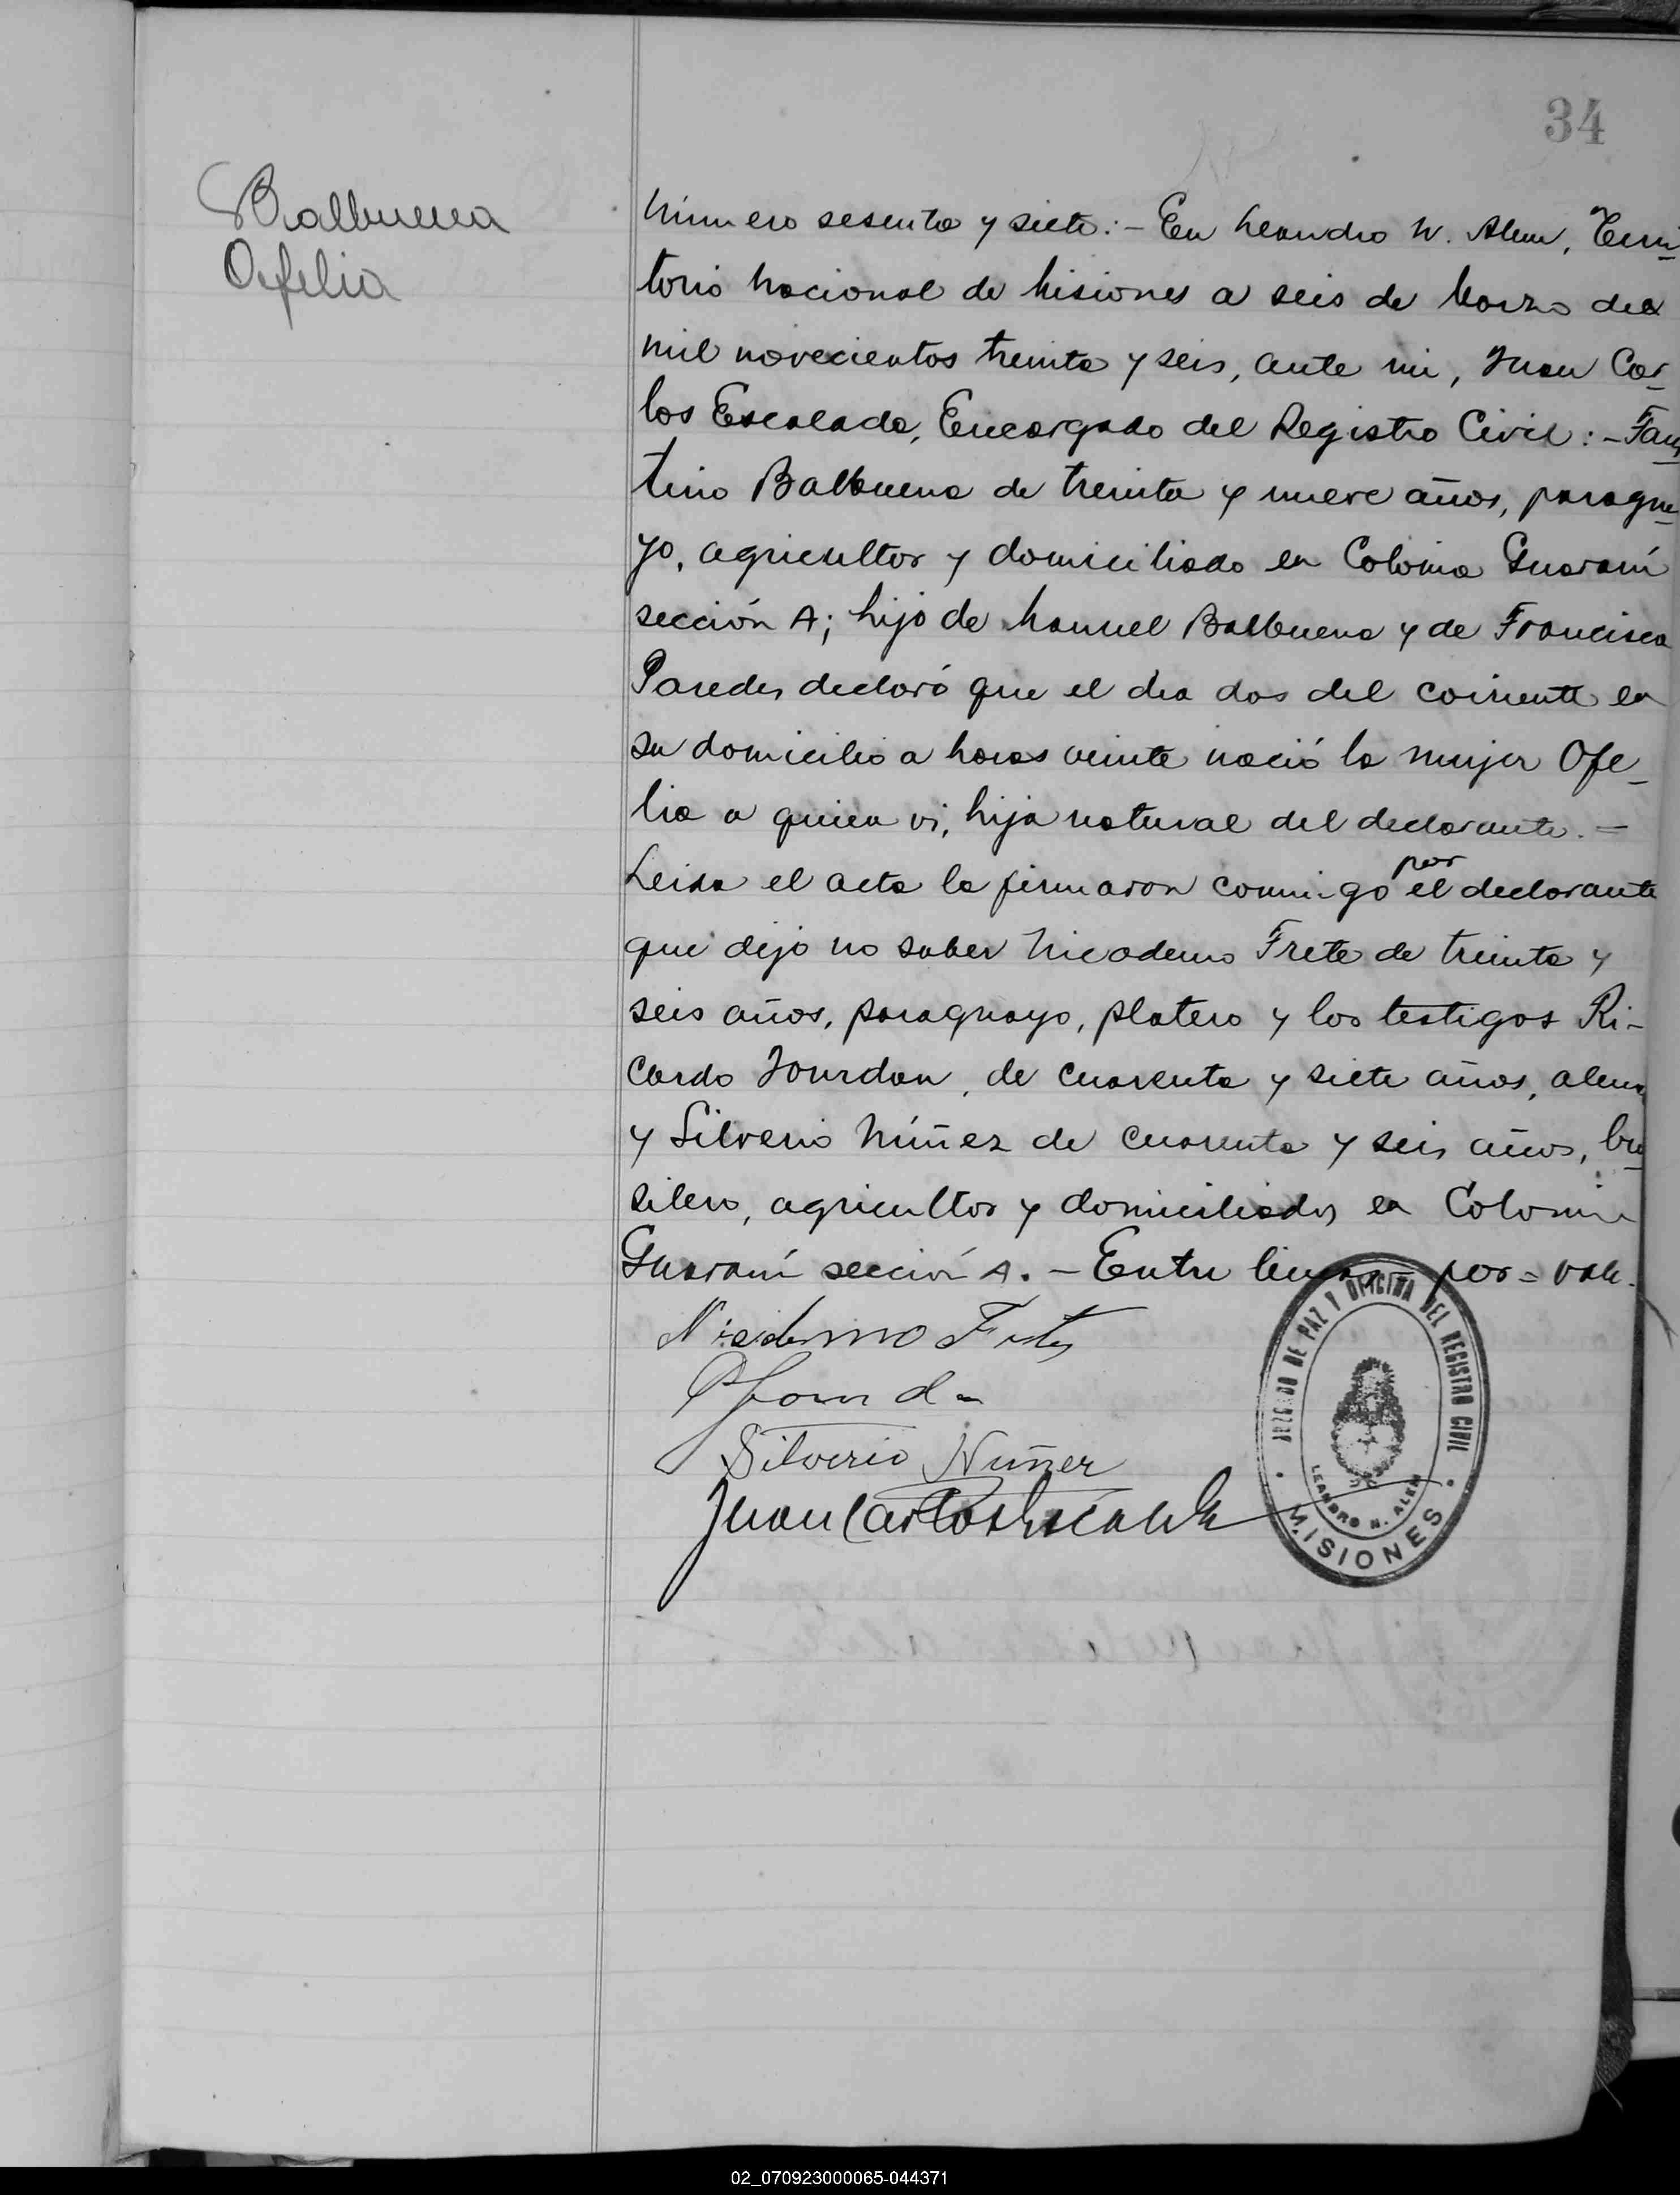 34
Balbuena
Ofelia
Número sesenta y siete:- En Leandro N. Alem, Terri_
torio Nacional de Misiones a seis de Marzo de
mil novecientos treinta y seis, ante mi, Juan Car_
los Escalada, Encargado del Registro Civil:- Faus_
tino Balbuena de treinta y nueve años, paragua_
yo, agricultor y domiciliado en Colonia Guaraní
sección A; hijo de Manuel Balbuena y de Francisca
Paredes declaró que el dia dos del corriente en
su domicilio a horas veinte nació la mujer Ofe_
lia a quien vi, hija natural del declarante. =
por
Leida el acta la firmaron conmigo el declarante
que dijo no saber Nicodemo Frete de treinta y
seis años, paraguayo, platero y los testigos Ri-
cardo Jourdan, de cuarenta y siete años, alemán
y Silverio Núñez de cuarenta y seis años, bra_
silero, agricultor y domiciliados en Colonia
Guaraní sección A. - Entre lineas = por = vale.
Nicodemo Frete
Silverio Nuñez
Juan Carlos Escalada
JUZGADO DE PAZ Y OFICINA DEL REGISTRO CIVIL
LEANDRO N. ALEM
MISIONES
02_070923000065-044371